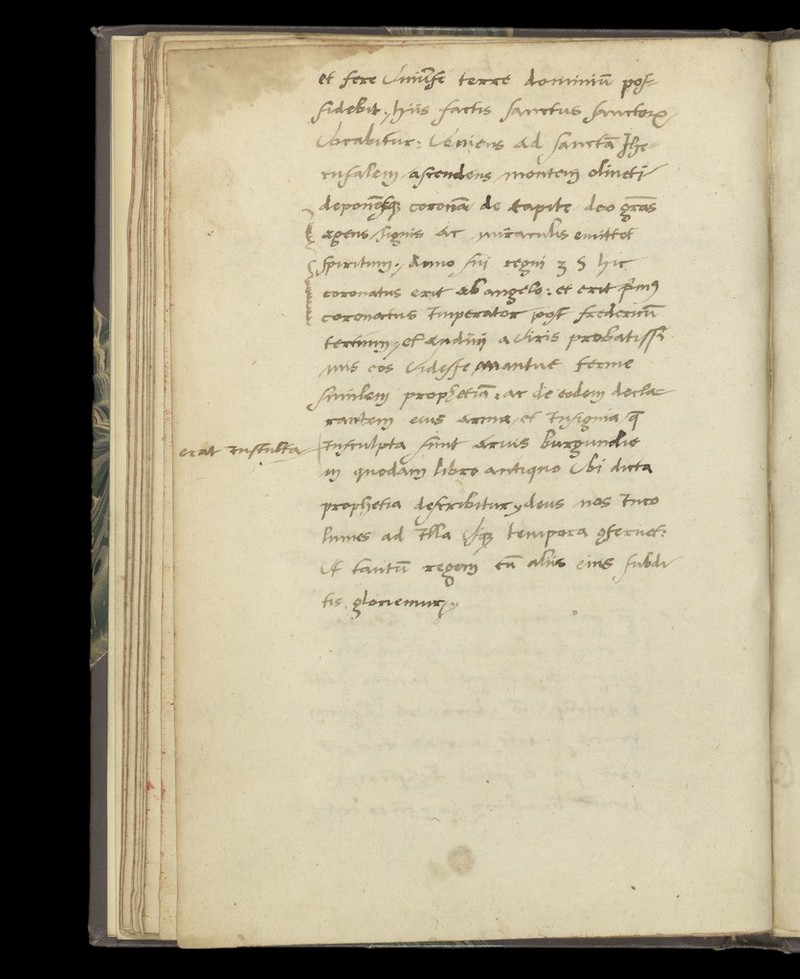 et fere Vniūse terre dominiū pos-
sidebit. hiis factis sanctus sanctoꝝ
Vocabitur: Veniens ad sanctā Jhe-
rusalem ascendens montem oliueti
deponētqꝫ coronā de capite deo grās
agens signis ac miraculis emittet
spiritum. Anno sui regni 35 hic
coronatus erit ab angelo: et erit p̄mꝰ
coronatus Imperator post fredericū
tertium, et audiui a Viris probatissi
mis eos Vidisse mantue ferme
similem prophetiā: ac de eodem decla-
rantem eius arma et Insignia q̄
erat Insculta
Insculpta sunt armis burgundie
in quodam libro antiquo Vbi dicta
prophetia describitur, deus nos Inco
lumes ad Illa Vsqꝫ tempora ꝯseruet:
Vt tantū regem cū aliis eius subdi
tis gloriemur,